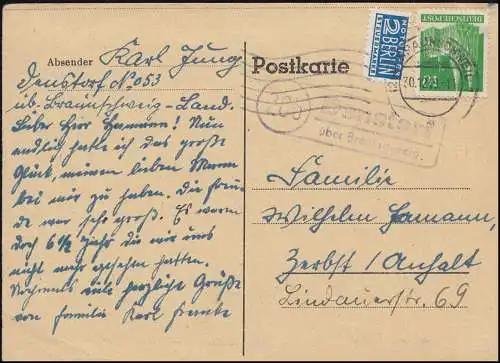 Absender Karl Jung
Denstorf No 053
üb. Braunschweig-Land.
Liebe Frau Hamann! Nun
endlich hatte ich das große
Glück, meinen lieben Mann
bei mir zu haben. Die Freu
de war sehr groß. Es waren
doch 6 1/2 Jahr die wir uns
nicht mehr gesehen hatten.
Nochmals viele herzliche Grüße
von Familie Karl
Postkarte
NOTOPFER
2 BERLIN
STEUERMARKE
DEUTSCHE POST
BRAUNSCHWEIG
30.12.49
20b
Denstorf
über Braunschweig.
Familie
Wilhelm Hamann,
Zerbst / Anhalt
Lindauerstr. 69